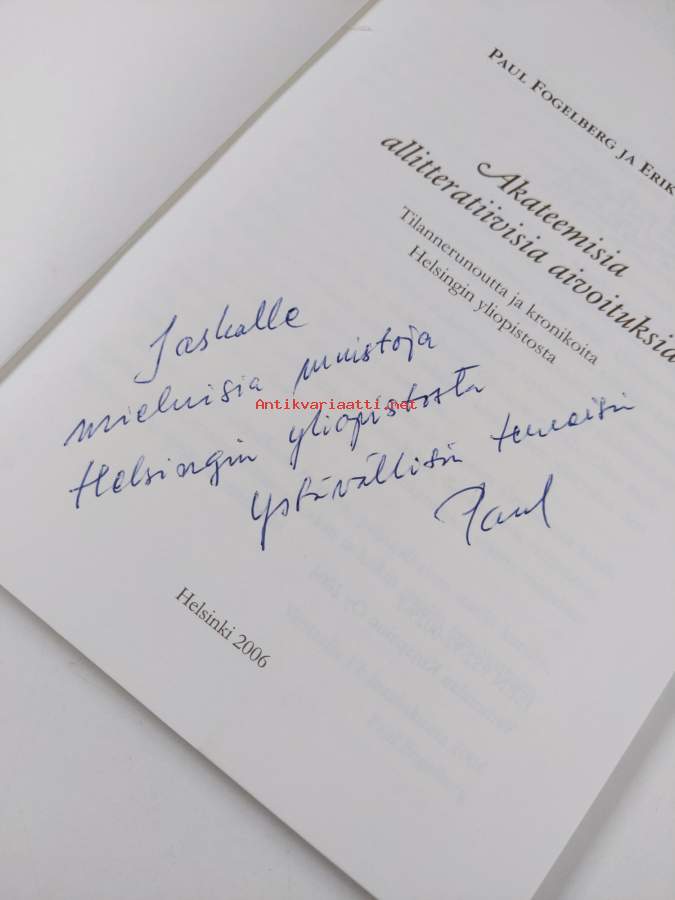 PAUL FOGELBERG JA ERIK
Akateemisia
allitteratiivisia aivoituksia
Tilannerunoutta ja kronikoita
Helsingin yliopistosta
Jaskalle
mieluisia muistoja
Helsingin yliopistosta
Ystävällisin terveisin
Paul
Helsinki 2006
Antikvariaatti.net